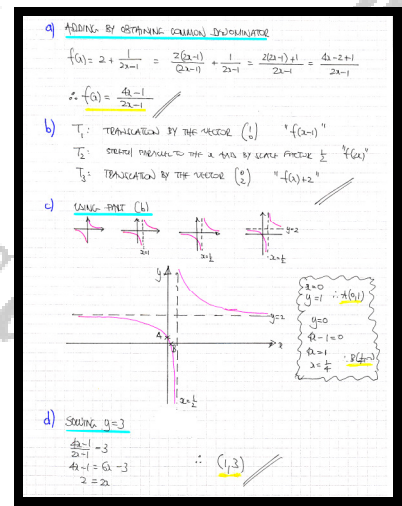 a) ADDING BY OBTAINING COMMON DENOMINATOR
f(x) = 2 + 1/(2x-1) = 2(2x-1)/(2x-1) + 1/(2x-1) = (2(2x-1)+1)/(2x-1) = (4x-2+1)/(2x-1)
∴ f(x) = (4x-1)/(2x-1)
b) T₁: TRANSLATION BY THE VECTOR (1 0) "f(x-1)"
T₂: STRETCH PARALLEL TO THE x AXIS BY SCALE FACTOR 1/2 "f(2x)"
T₃: TRANSLATION BY THE VECTOR (0 2) "f(x)+2"
c) USING PART (b)
x=1
x=1/2
y=2
x=1/2
y
y=2
x
A
B
x=1/2
x=0
y=1 ∴ A(0,1)
y=0
4x-1=0
4x=1
x=1/4 ∴ B(1/4,0)
d) SOLVING y=3
(4x-1)/(2x-1) = 3
4x-1 = 6x-3
2 = 2x
∴ (1,3)